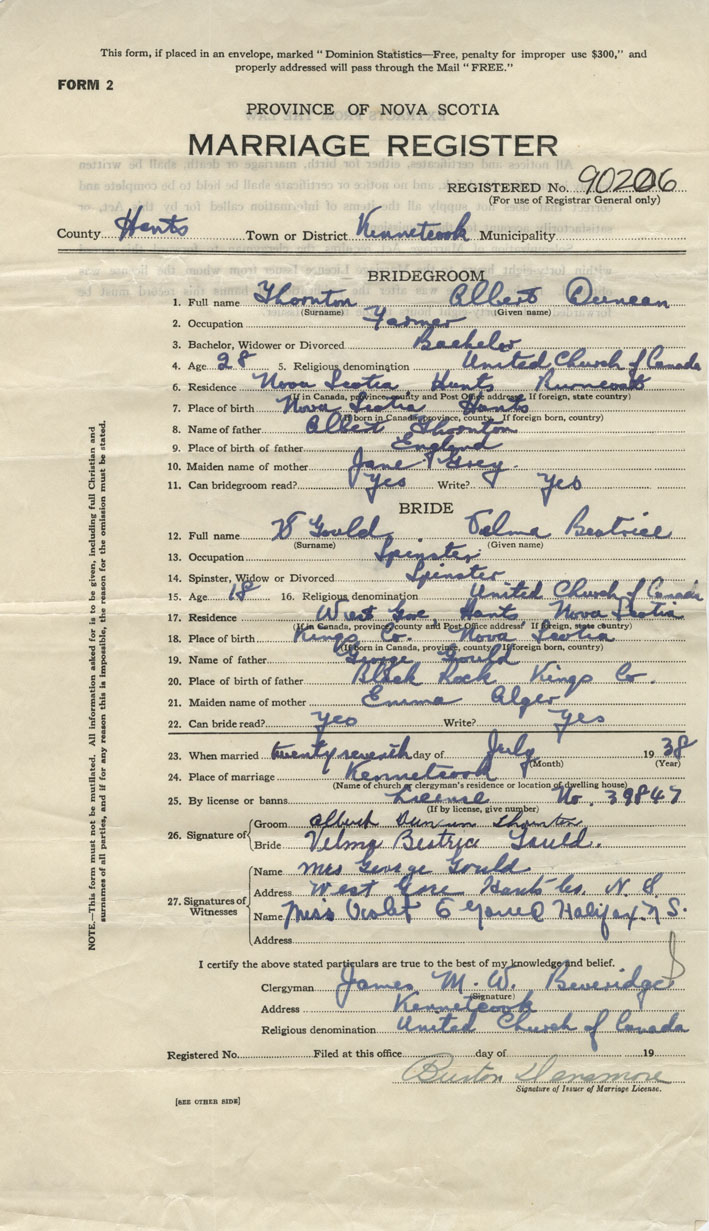 This form, if placed in an envelope, marked "Dominion Statistics—Free, penalty for improper use $300," and
properly addressed will pass through the Mail "FREE."
FORM 2
PROVINCE OF NOVA SCOTIA
MARRIAGE REGISTER
REGISTERED No. 90206
(For use of Registrar General only)
County Hants Town or District Kennetcook Municipality
BRIDEGROOM
1. Full name Thornton Albert Duncan
(Surname) (Given name)
2. Occupation Farmer
3. Bachelor, Widower or Divorced Bachelor
4. Age 28 5. Religious denomination United Church of Canada
6. Residence Nova Scotia Hants
(If in Canada, province, county and Post Office address. If foreign, state country)
7. Place of birth Nova Scotia Hants
(If born in Canada, province, county. If foreign born, country)
8. Name of father Albert Thornton
9. Place of birth of father England
10. Maiden name of mother Jane Grey
11. Can bridegroom read? Yes Write? Yes
BRIDE
12. Full name Gould Velma Beatrice
(Surname) (Given name)
13. Occupation Spinster
14. Spinster, Widow or Divorced Spinster
15. Age 18 16. Religious denomination United Church of Canada
17. Residence West Gore, Hants Nova Scotia
(If in Canada, province, county and Post Office address. If foreign, state country)
18. Place of birth Kings Co. Nova Scotia
(If born in Canada, province, county. If foreign born, country)
19. Name of father George Gould
20. Place of birth of father Black Rock Kings Co.
21. Maiden name of mother Emma Alger
22. Can bride read? Yes Write? Yes
23. When married twenty seventh day of July 1938
(Month) (Year)
24. Place of marriage Kennetcook
(Name of church or clergyman's residence or location of dwelling house)
25. By license or banns License No. 39847
(If by license, give number)
26. Signature of
Groom Albert Duncan Thornton
Bride Velma Beatrice Gould.
27. Signatures of Witnesses
Name Mrs George Gould
Address West Gore Hants Co. N. S
Name Miss Violet E Halifax. N S.
Address
I certify the above stated particulars are true to the best of my knowledge and belief.
Clergyman James M. W. Beveridge
(Signature)
Address Kennetcook
Religious denomination United Church of Canada
Registered No. Filed at this office day of 19
Burton Densmore
Signature of Issuer of Marriage License.
[SEE OTHER SIDE]
NOTE.—This form must not be mutilated. All information asked for is to be given, including full Christian and
surnames of all parties, and if for any reason this is impossible, the reason for the omission must be stated.